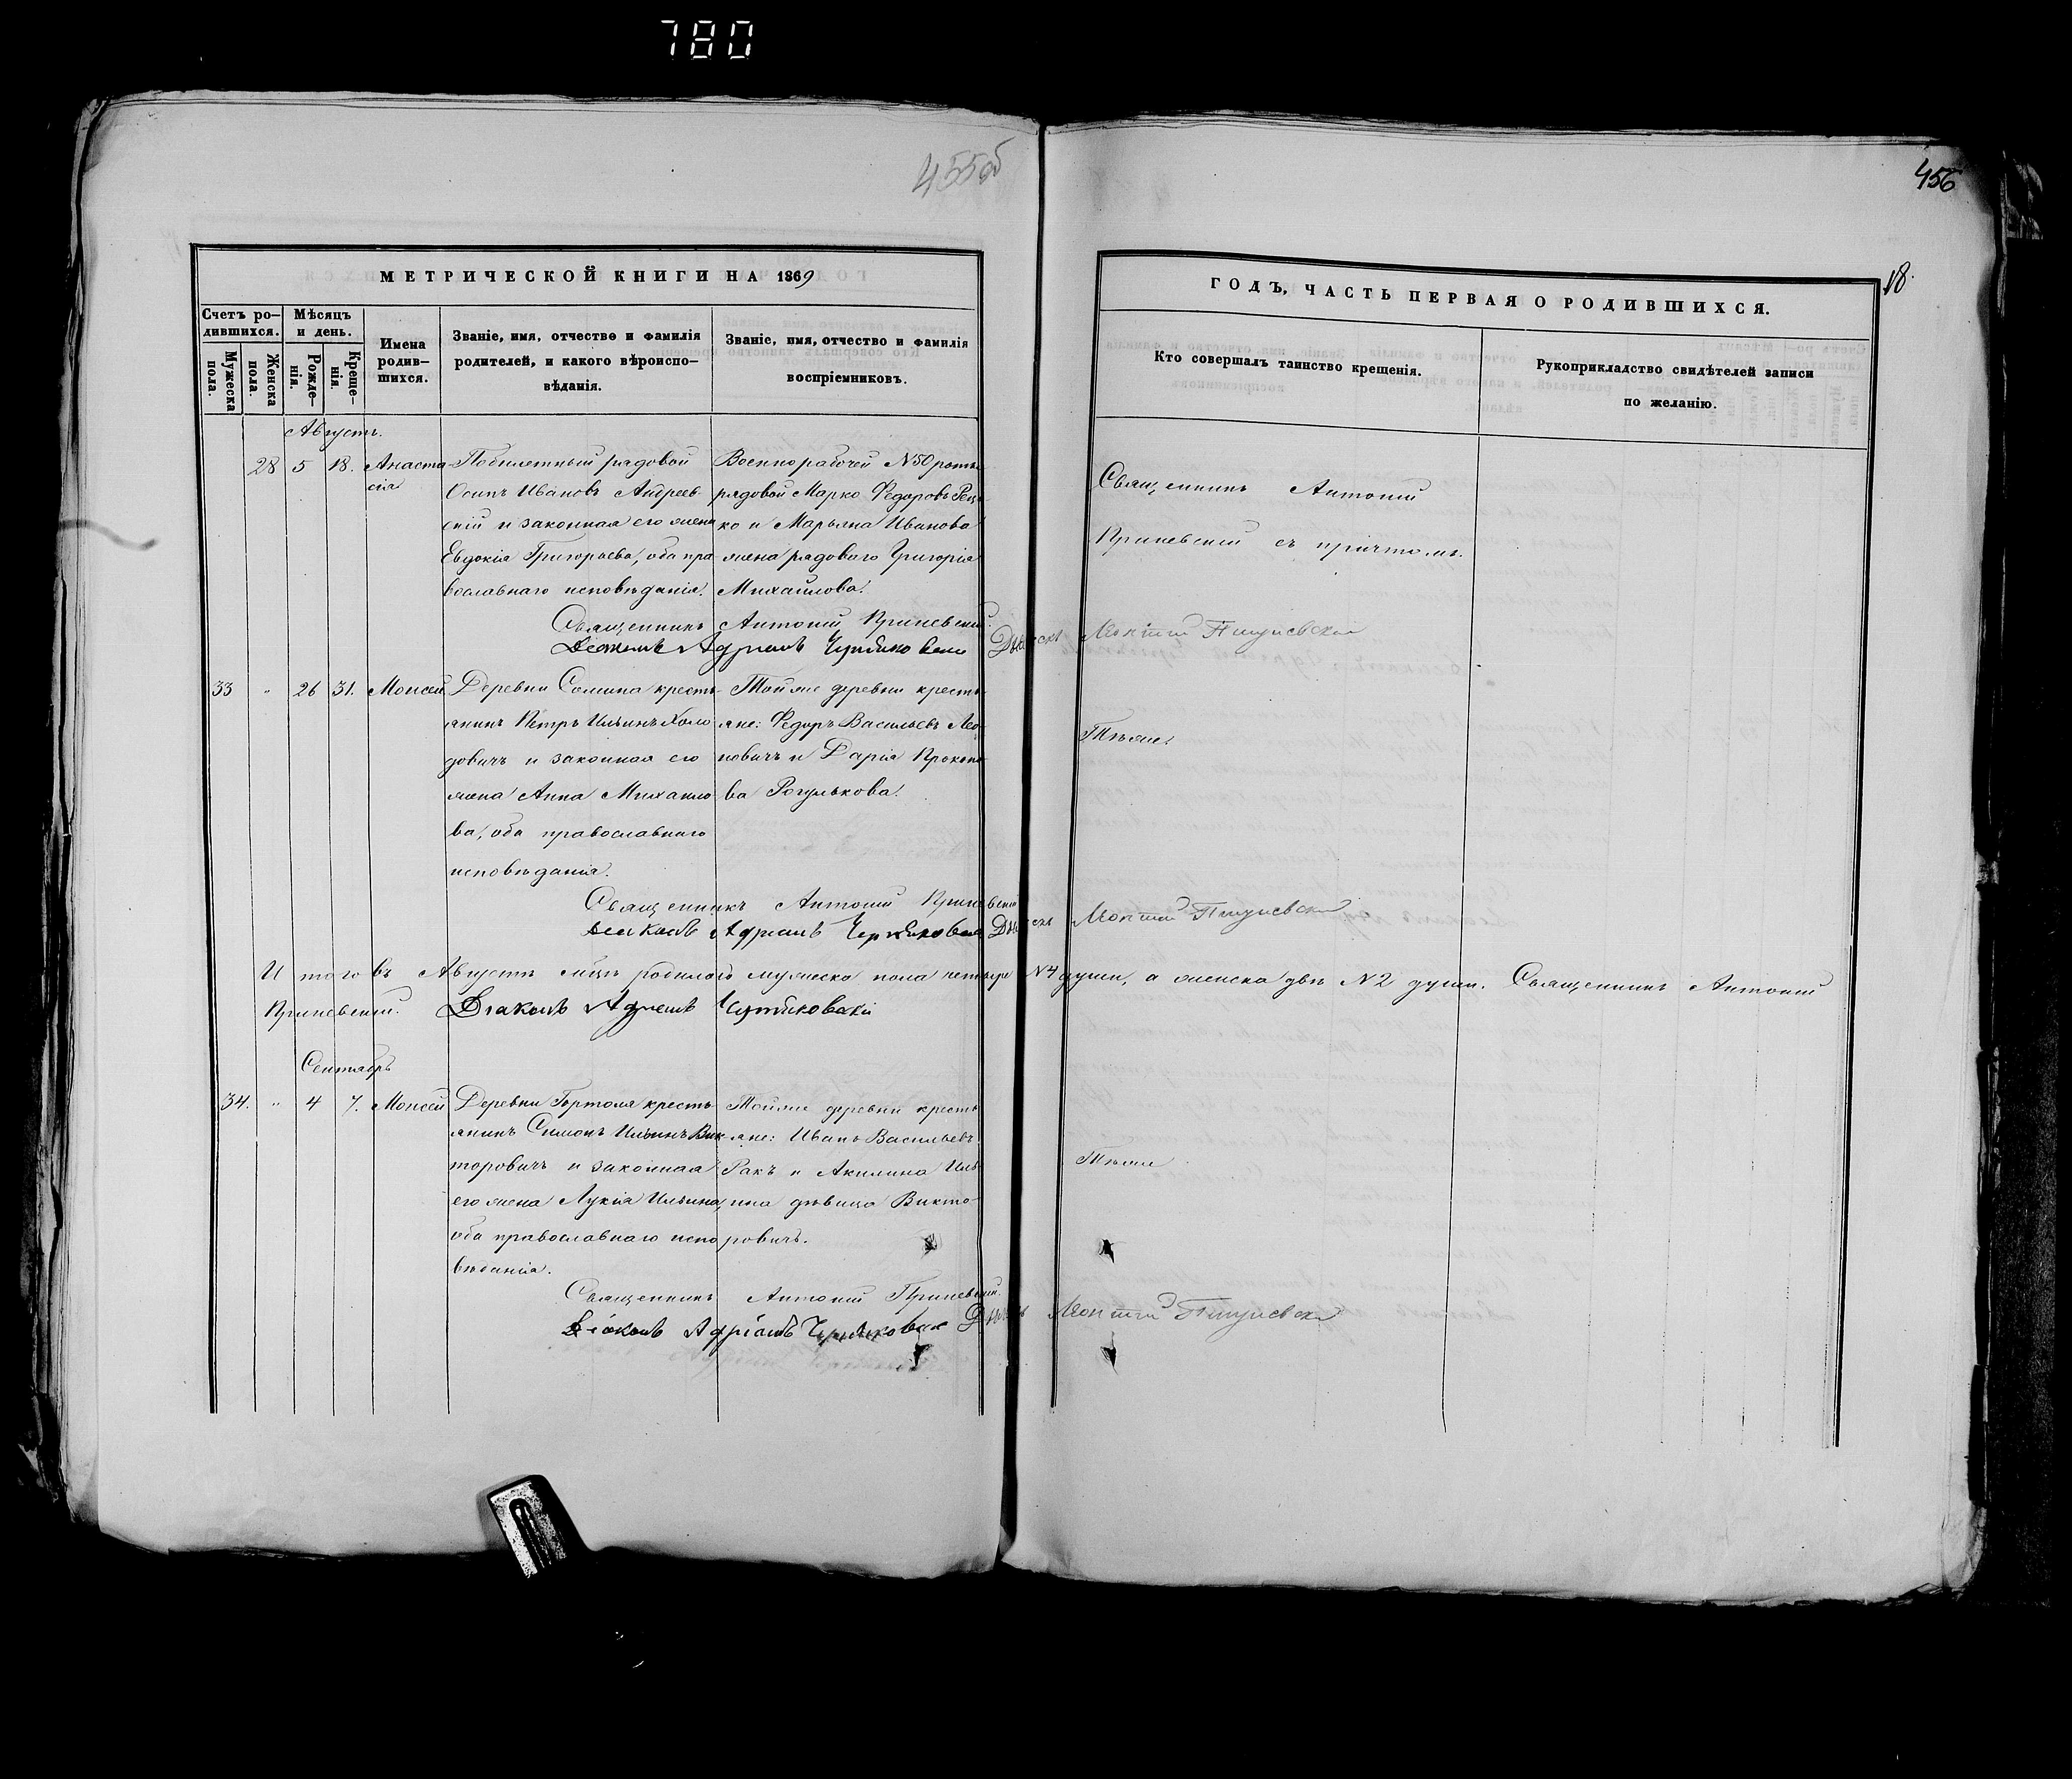 780
455об
456
МЕТРИЧЕСКОЙ КНИГИ НА 1869
ГОДЪ, ЧАСТЬ ПЕРВАЯ О РОДИВШИХСЯ.
18.
Счетъ ро-
дившихся.
Мужеска
пола.
Женска
пола.
Мѣсяцъ
и день.
Рожде-
нія.
Креще-
нія.
Имена
родив-
шихся.
Званіе, имя, отчество и фамилія
родителей, и какого вѣроиспо-
вѣданія.
Званіе, имя, отчество и фамилія
воспріемниковъ.
Кто совершалъ таинство крещенія.
Рукоприкладство свидѣтелей записи
по желанію.
Августъ.
28 5 18. Анаста
сія
рядовой
Осипъ Ивановъ Андреев
скій и законная его жена
Евдокія Григорьева, оба пра
вославнаго исповѣданія.
Военно рабочей №50 роты
рядовой Марко Федоровъ
ко и Марьяна Иванова
жена рядового Григорія
Михайлова.
Священникъ Антоній
Криневскій съ причтомъ.
Священникъ Антоній Криневскій.
Діаконъ Адріанъ
33 " 26 31. Моисей
Деревни Сомина кресть
янинъ Петръ Ильинъ Холо
довичъ и законная его
жена Анна Михайло
ва, оба православнаго
исповѣданія.
Тойже деревни кресть
яне: Федоръ Васильевъ Лео
новичъ и Дарія Прокопо
ва Рогулькова.
Тѣже.
Священникъ Антоній Криневскій
Діаконъ Адріанъ
Итого въ Августѣ мцѣ родилось мужеска пола четыре №4 души, а женска двѣ №2 души. Священникъ Антоній
Криневскій. Діаконъ Адріанъ
Сентябрь
34. " 4 7. Моисей
Деревни Гортоля кресть
янинъ Симонъ Ильинъ Вик
торовичъ и законная
его жена Лукія Ильина,
оба православнаго испо
вѣданія.
Тойже деревни кресть
яне: Иванъ Васильевъ
Ракъ и Акилина Иль
ина дѣвица Викто
ровичъ.
Тѣже
Священникъ Антоній Криневскій.
Діаконъ Адріанъ